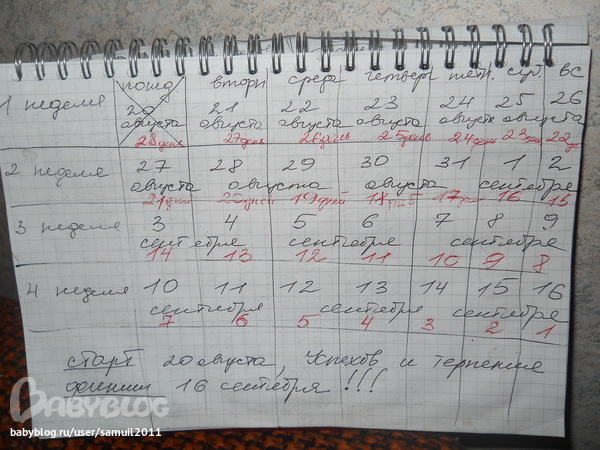 понд вторн среда четверг пятн. субт. вс
1 неделя 20 августа 21 августа 22 августа 23 августа 24 августа 25 августа 26
28 день 27 день 26 день 25 день 24 дня 23 дня 22 дн
2 неделя 27 28 29 30 31 1 2
августа августа августа сентября
21 дн 20 дней 19 дней 18 дней 17 дн 16 15
3 неделя 3 4 5 6 7 8 9
сентября сентября сентября
14 13 12 11 10 9 8
4 неделя 10 11 12 13 14 15 16
сентября сентября сентября
7 6 5 4 3 2 1
старт 20 августа, Успехов и терпение
финиш 16 сентября !!!
BABYBLOG
babyblog.ru/user/samuil2011